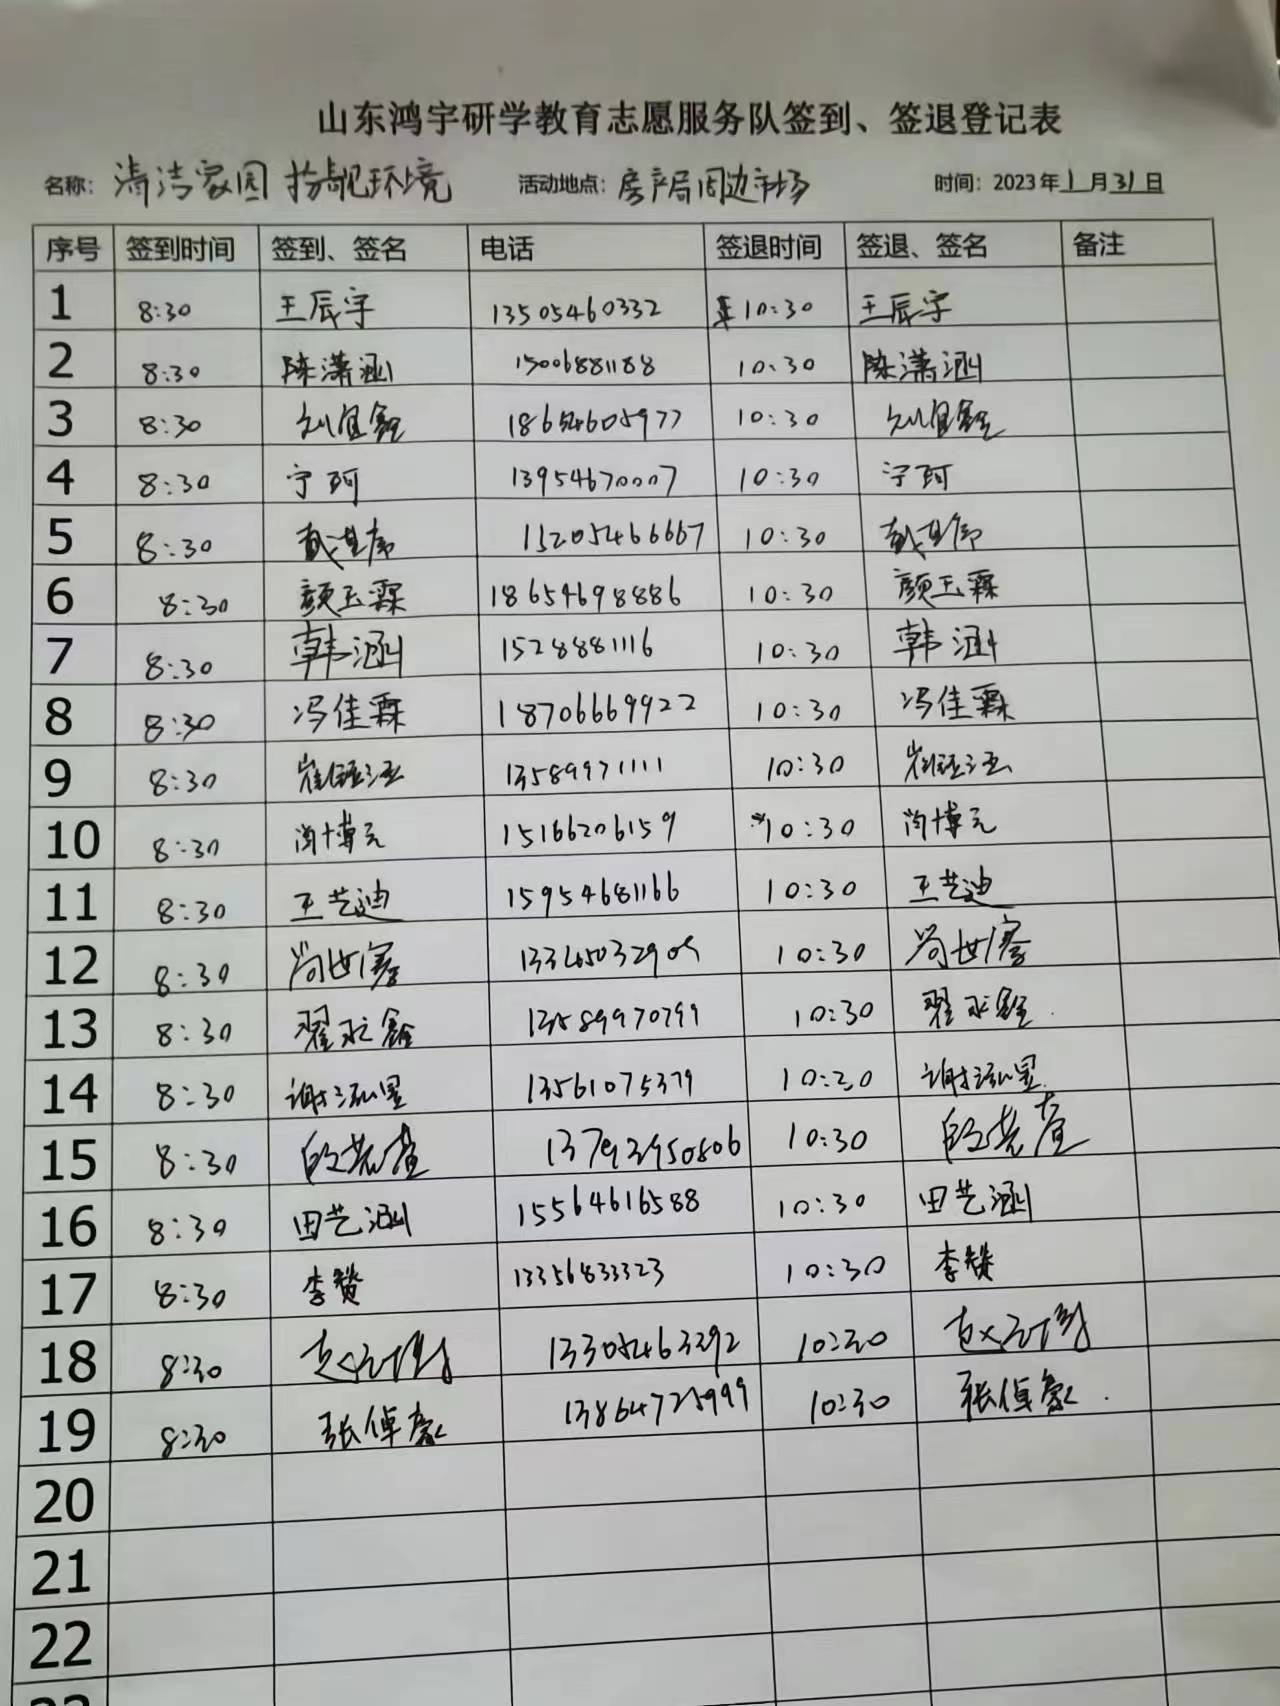 山东鸿宇研学教育志愿服务队签到、签退登记表
名称：清洁家园 扮靓环境 活动地点：房产局周边市场 时间：2023年1月31日
序号 签到时间 签到、签名 电话 签退时间 签退、签名 备注
1 8:30 王辰宇 13505460332 10:30 王辰宇
2 8:30 陈潇涵 15006881188 10:30 陈潇涵
3 8:30 刘宜鑫 18654605977 10:30 刘宜鑫
4 8:30 宁珂 13954670007 10:30 宁珂
5 8:30 15205466667 10:30
6 8:30 颜玉霖 18654698886 10:30 颜玉霖
7 8:30 韩涵 1528881116 10:30 韩涵
8 8:30 冯佳霖 18706669922 10:30 冯佳霖
9 8:30 13589971111 10:30
10 8:30 尚博元 15166206159 10:30 尚博元
11 8:30 王艺迪 15954681166 10:30 王艺迪
12 8:30 10:30
13 8:30 翟永鑫 13589970799 10:30 翟永鑫
14 8:30 谢泓墨 13561075379 10:30 谢泓墨
15 8:30 10:30
16 8:30 田艺涵 15564616588 10:30 田艺涵
17 8:30 李赞 13356833323 10:30 李赞
18 8:30 13305463392 10:30
19 8:30 张倬豪 13864725999 10:30 张倬豪
20
21
22